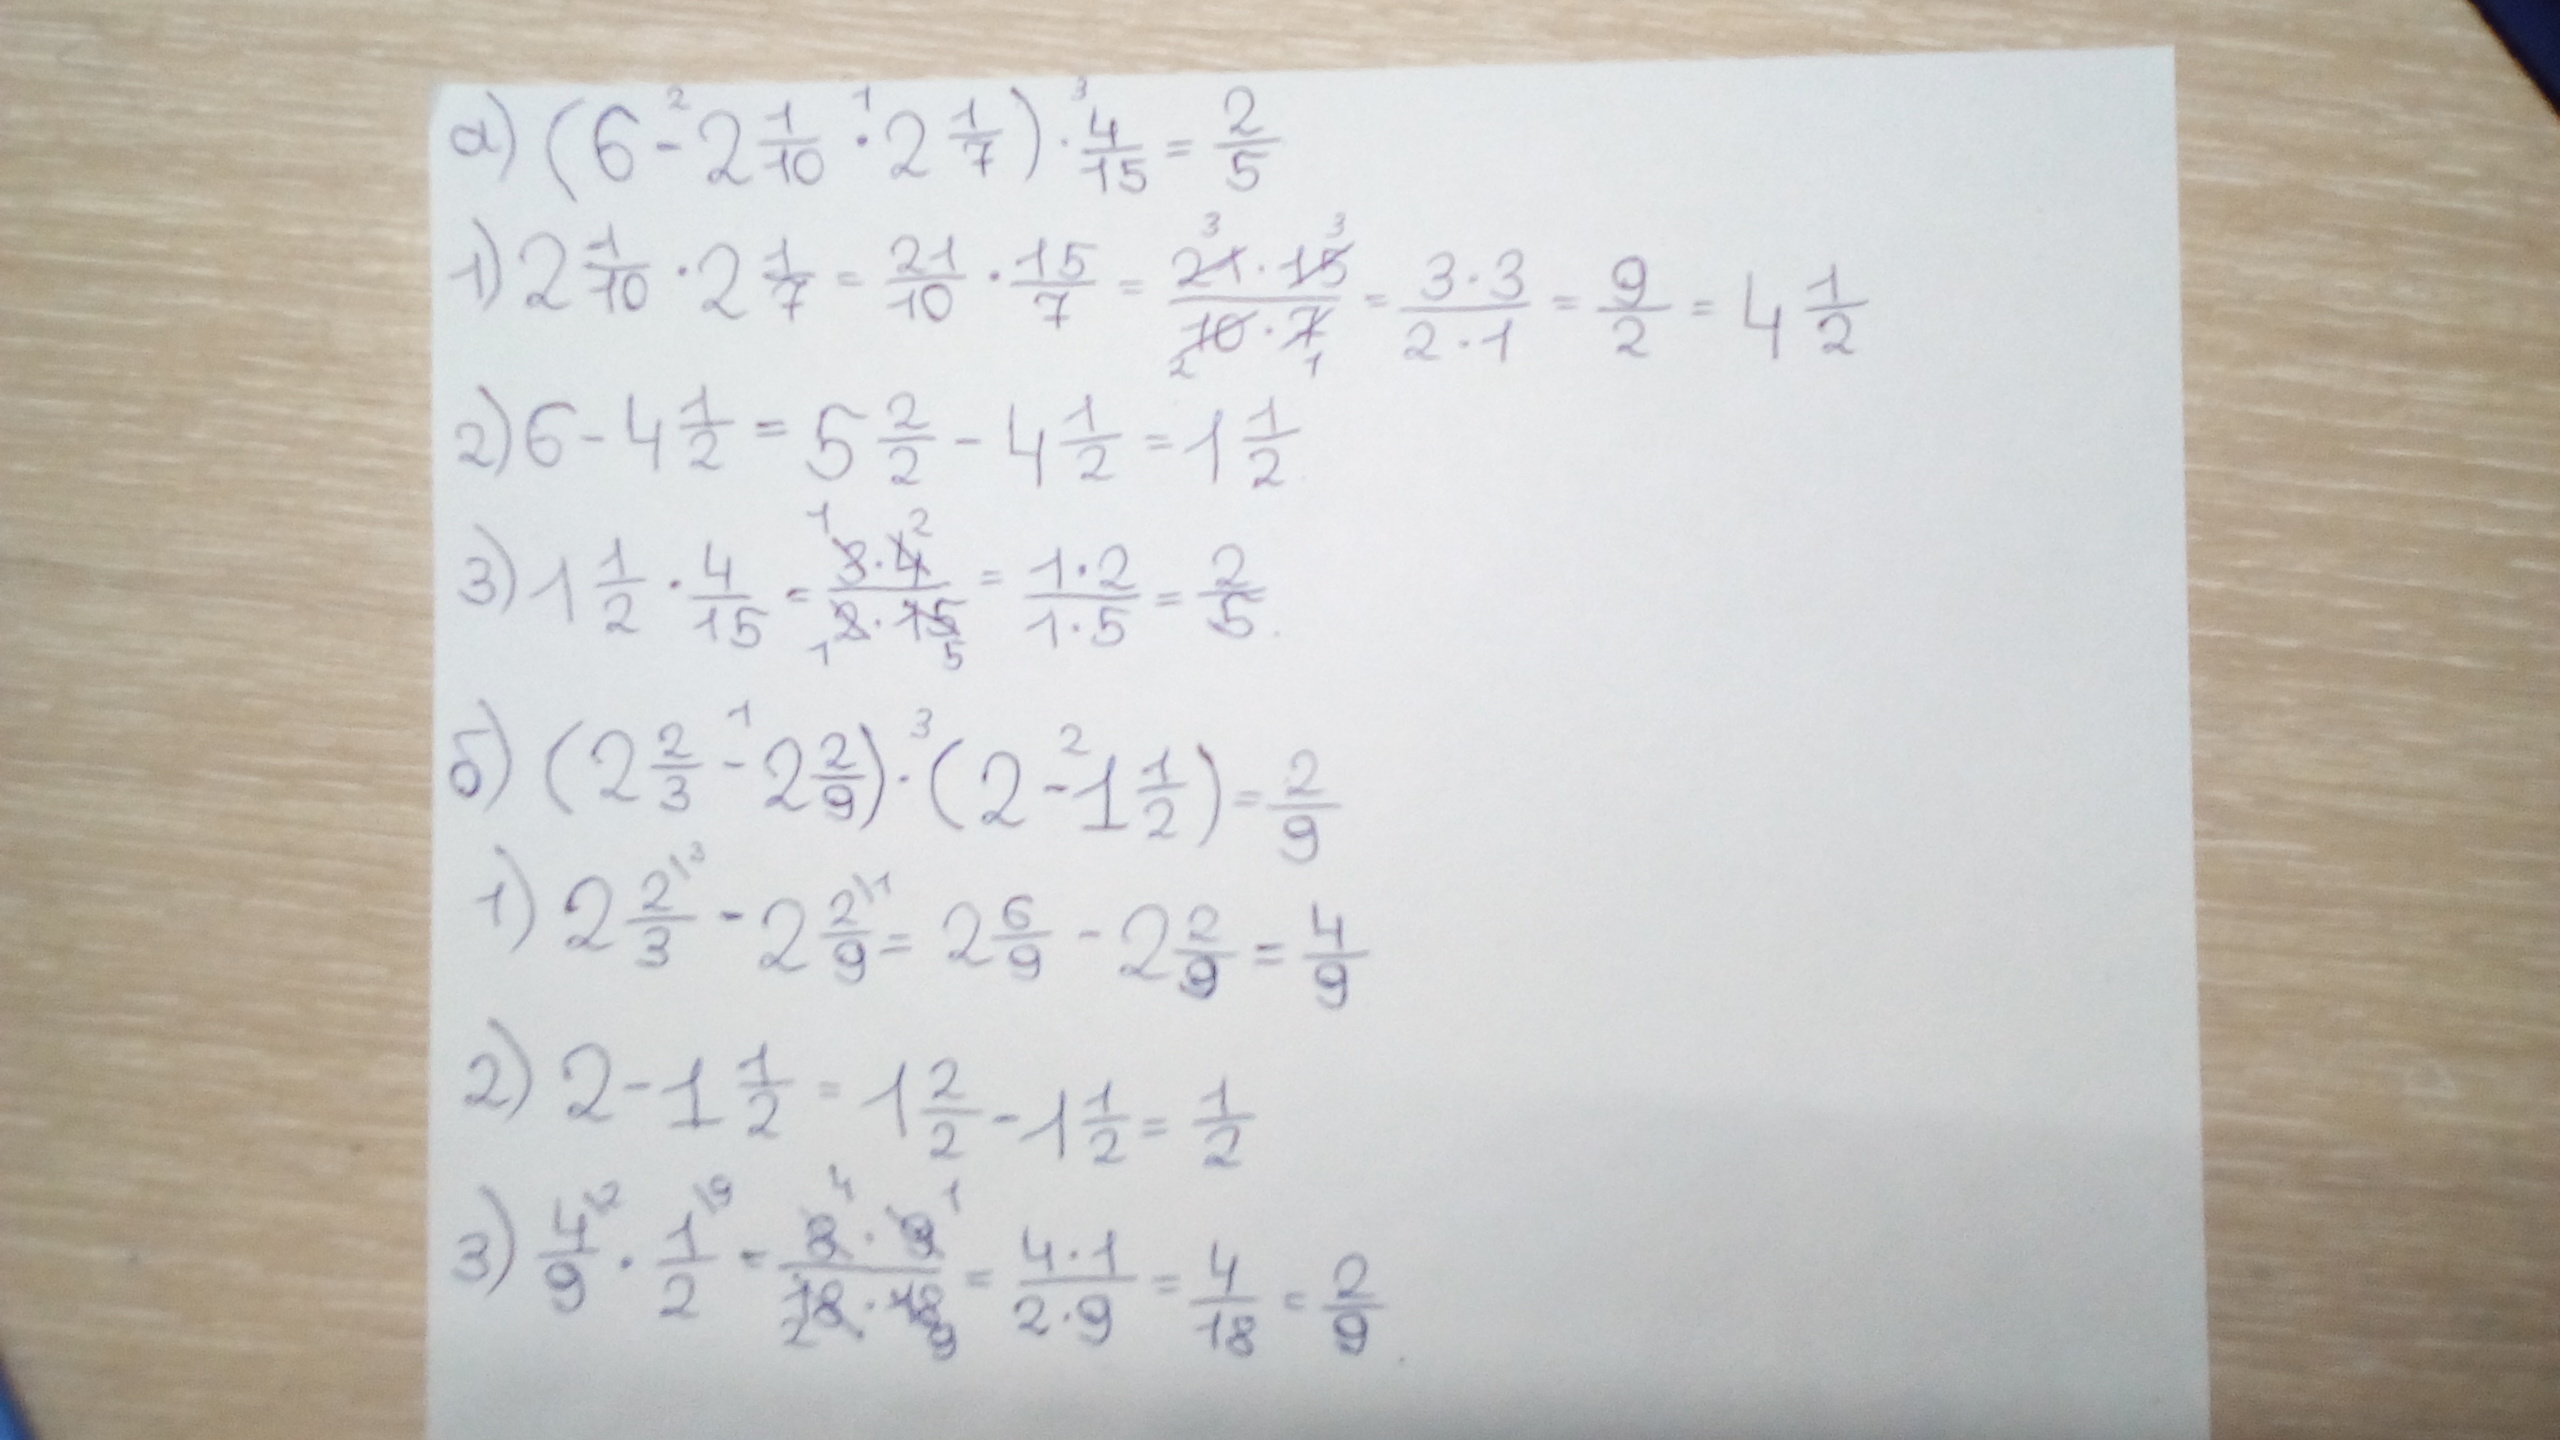 а) (6 -² 2 1/10 ·¹ 2 1/7) ·³ 4/15 = 2/5
1) 2 1/10 · 2 1/7 = 21/10 · 15/7 = 21³ · 15³ / 10₂ · 7₁ = 3·3 / 2·1 = 9/2 = 4 1/2
2) 6 - 4 1/2 = 5 2/2 - 4 1/2 = 1 1/2
3) 1 1/2 · 4/15 = ¹3 · 4² / ₁2 · 15₅ = 1·2 / 1·5 = 2/5.
б) (2 2/3 -¹ 2 2/9) ·³ (2 -² 1 1/2) = 2/9
1) 2 2\3/3 - 2 2\1/9 = 2 6/9 - 2 2/9 = 4/9
2) 2 - 1 1/2 = 1 2/2 - 1 1/2 = 1/2
3) 4\2/9 · 1\9/2 = 8⁴ · 9¹ / ₂18 · 18₉ = 4·1 / 2·9 = 4/18 = 2/9.